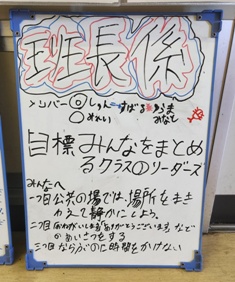 班長係
メンバー◎しゅん すばる ゆうま
○めい みなと
目標みんなをまとめ
るクラスのリーダーズ
みんなへ
一つ目公共の場では、場所をわき
まえて静かにしよう。
二つ目おねがいします、ありがとうございます、など
のあいさつをする
三つ目ならぶのに時間をかけない